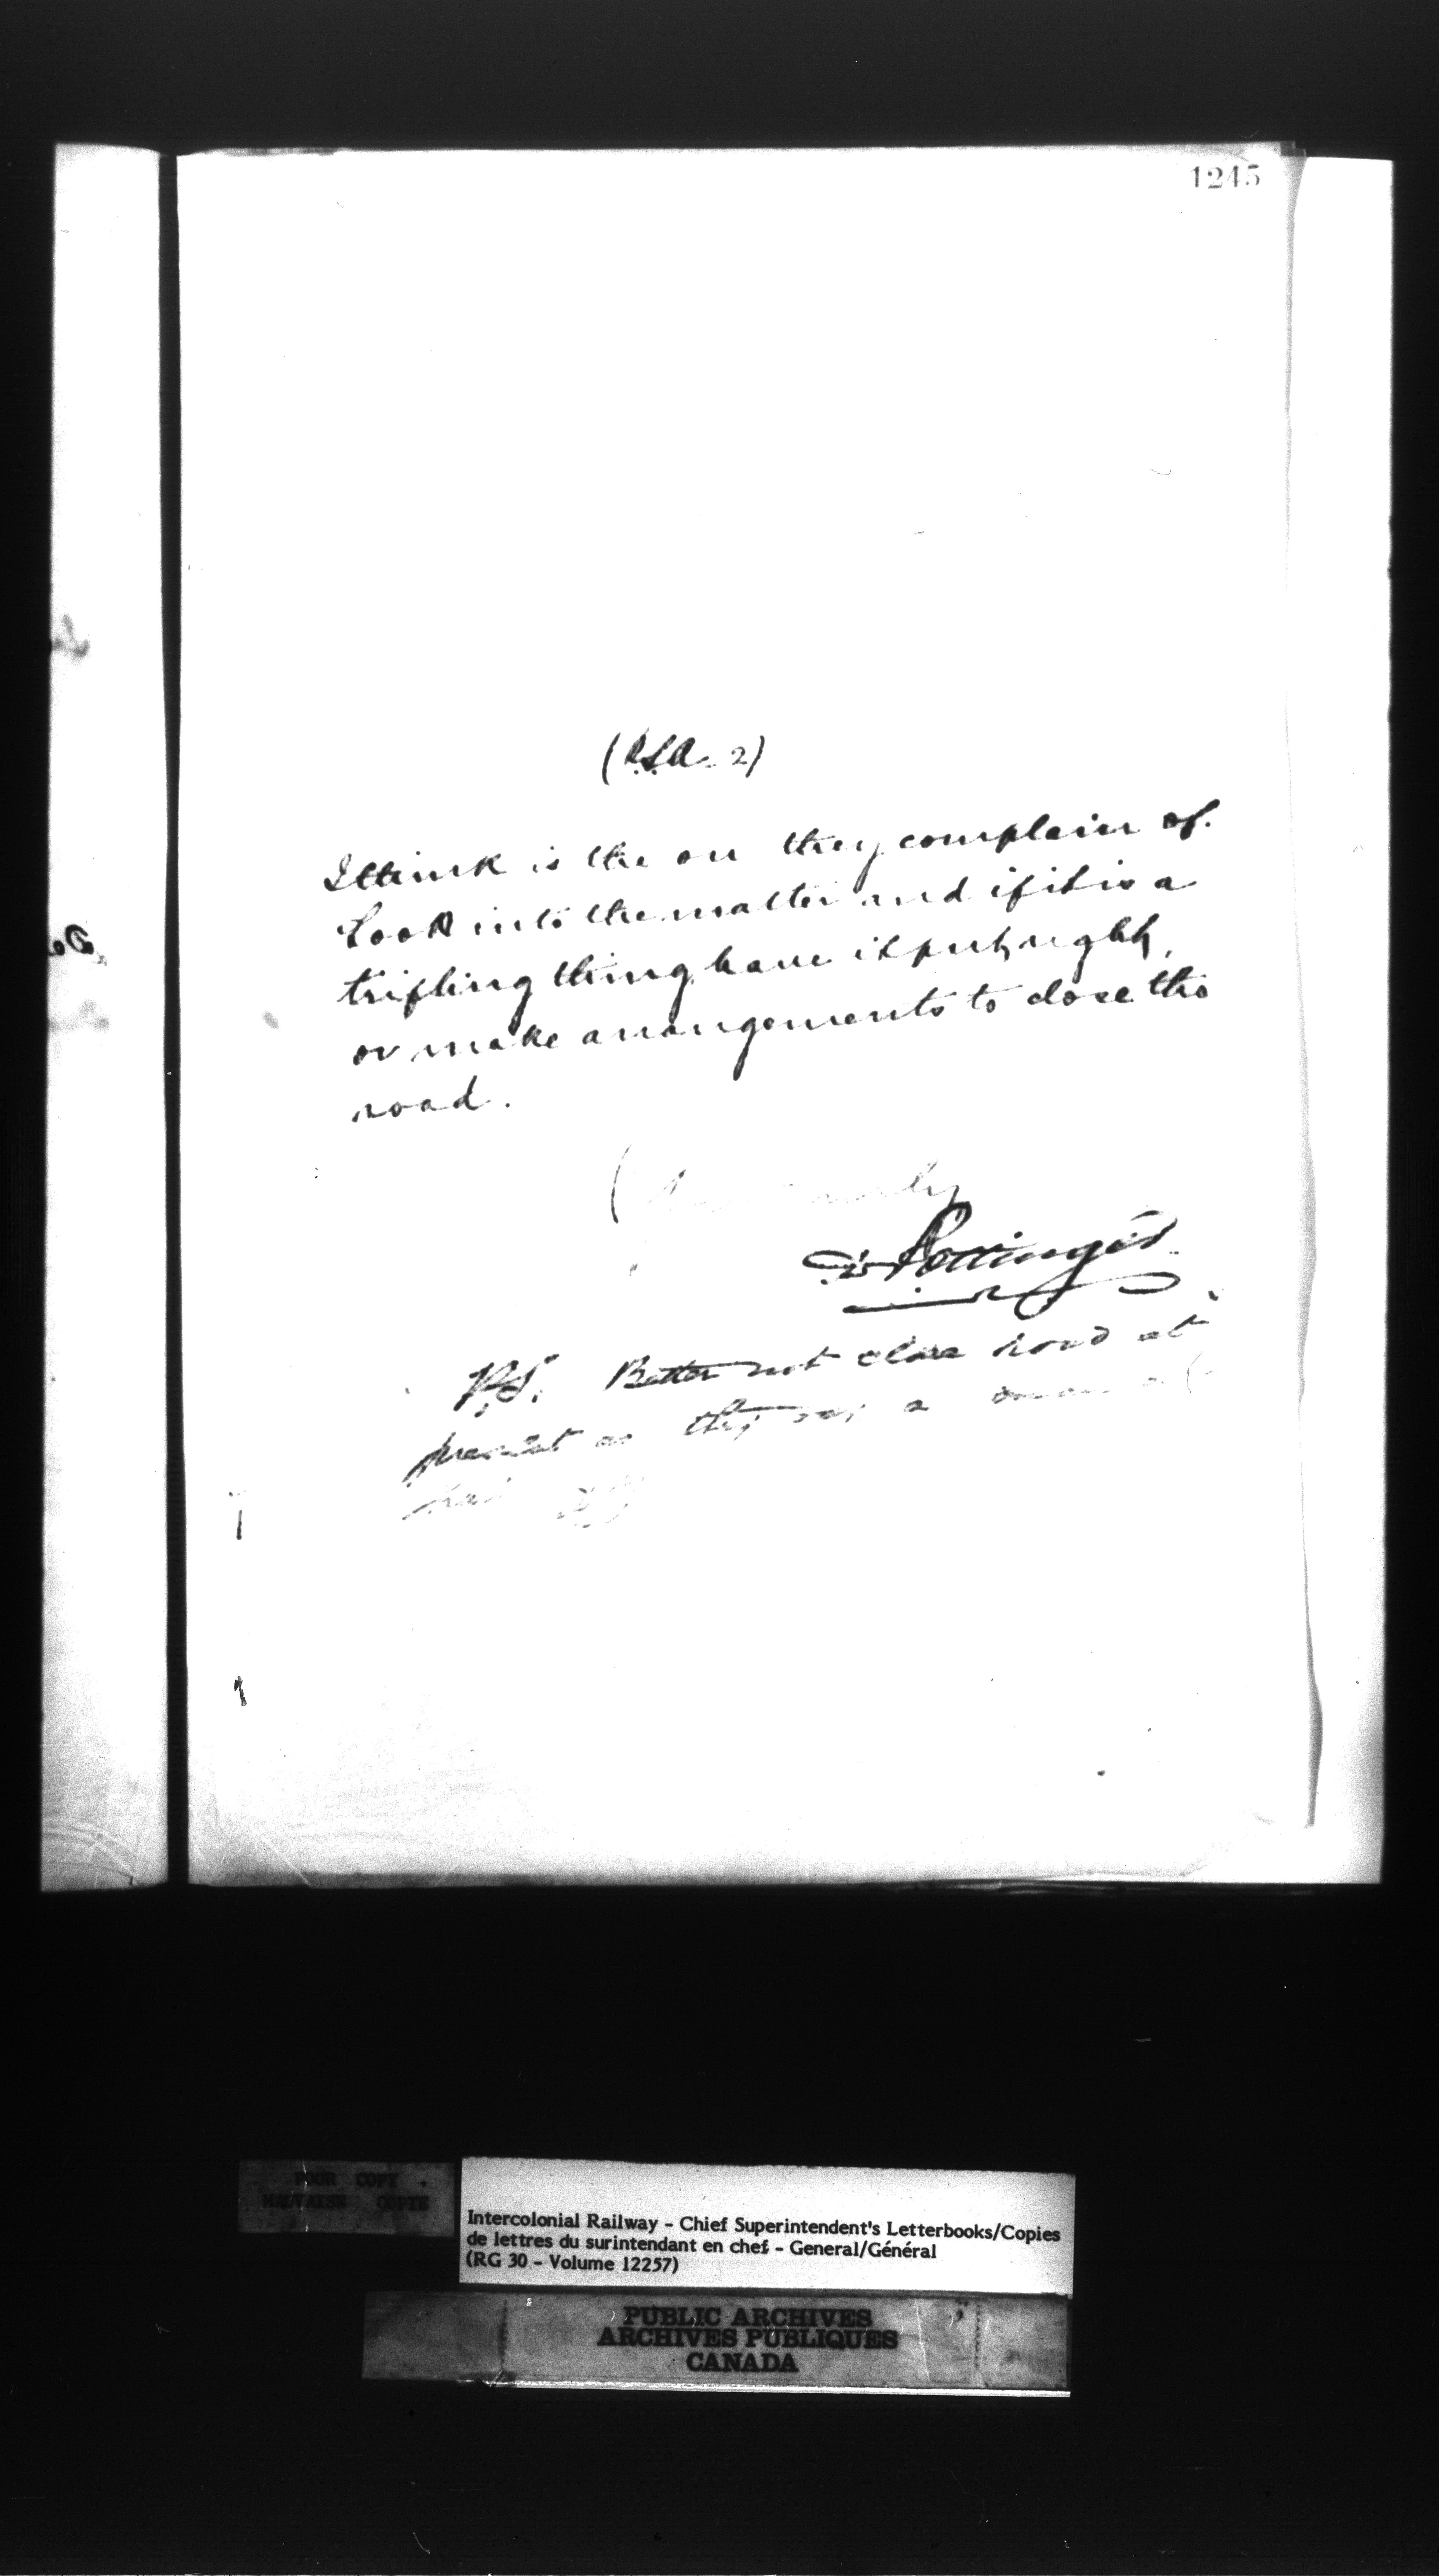 1245
(P.S.A. 2)
I think is the on they complain of.
Look into the matter and if it is a
trifling thing have it put right,
or make arrangements to close the
road.
D Pottinger
P.S. Better not close road at
present as they say a
POOR COPY
MAUVAISE COPIE
Intercolonial Railway - Chief Superintendent's Letterbooks/Copies
de lettres du surintendant en chef - General/Général
(RG 30 - Volume 12257)
PUBLIC ARCHIVES
ARCHIVES PUBLIQUES
CANADA